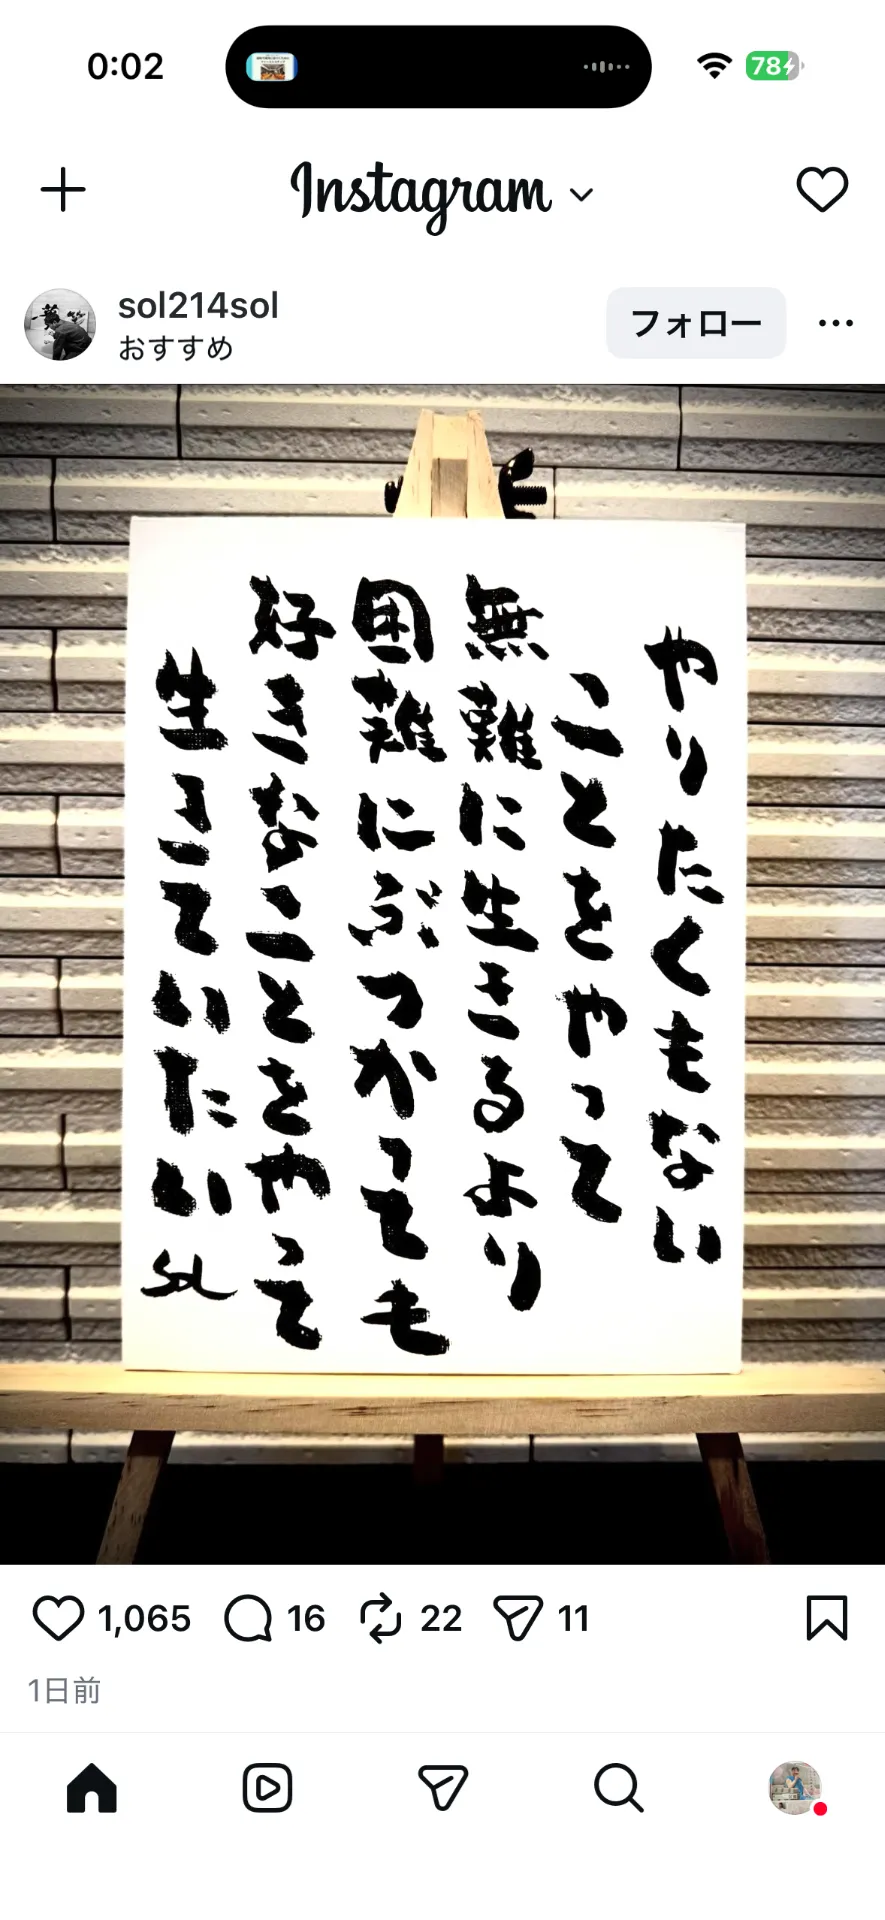 0:02
78
Instagram
sol214sol
おすすめ
フォロー
やりたくもない
ことをやって
無難に生きるより
困難にぶつかっても
好きなことをやって
生きていたい
sol
1,065
16
22
11
1日前